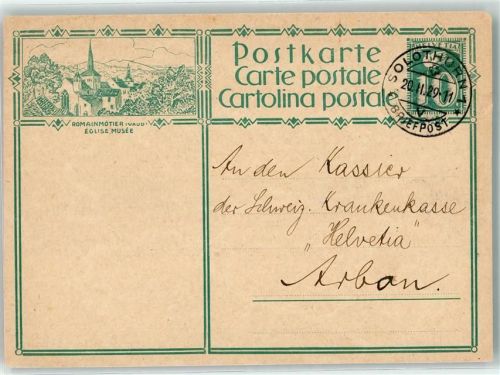 Postkarte
Carte postale
Cartolina postale
HELVETIA
10
SOLOTHURN 1
20.II.29-11
BRIEFPOST
ROMAINMOTIER (VAUD)
ÉGLISE MUSÉE
An den Kassier
der Schweiz. Krankenkasse
„Helvetia"
Arbon.